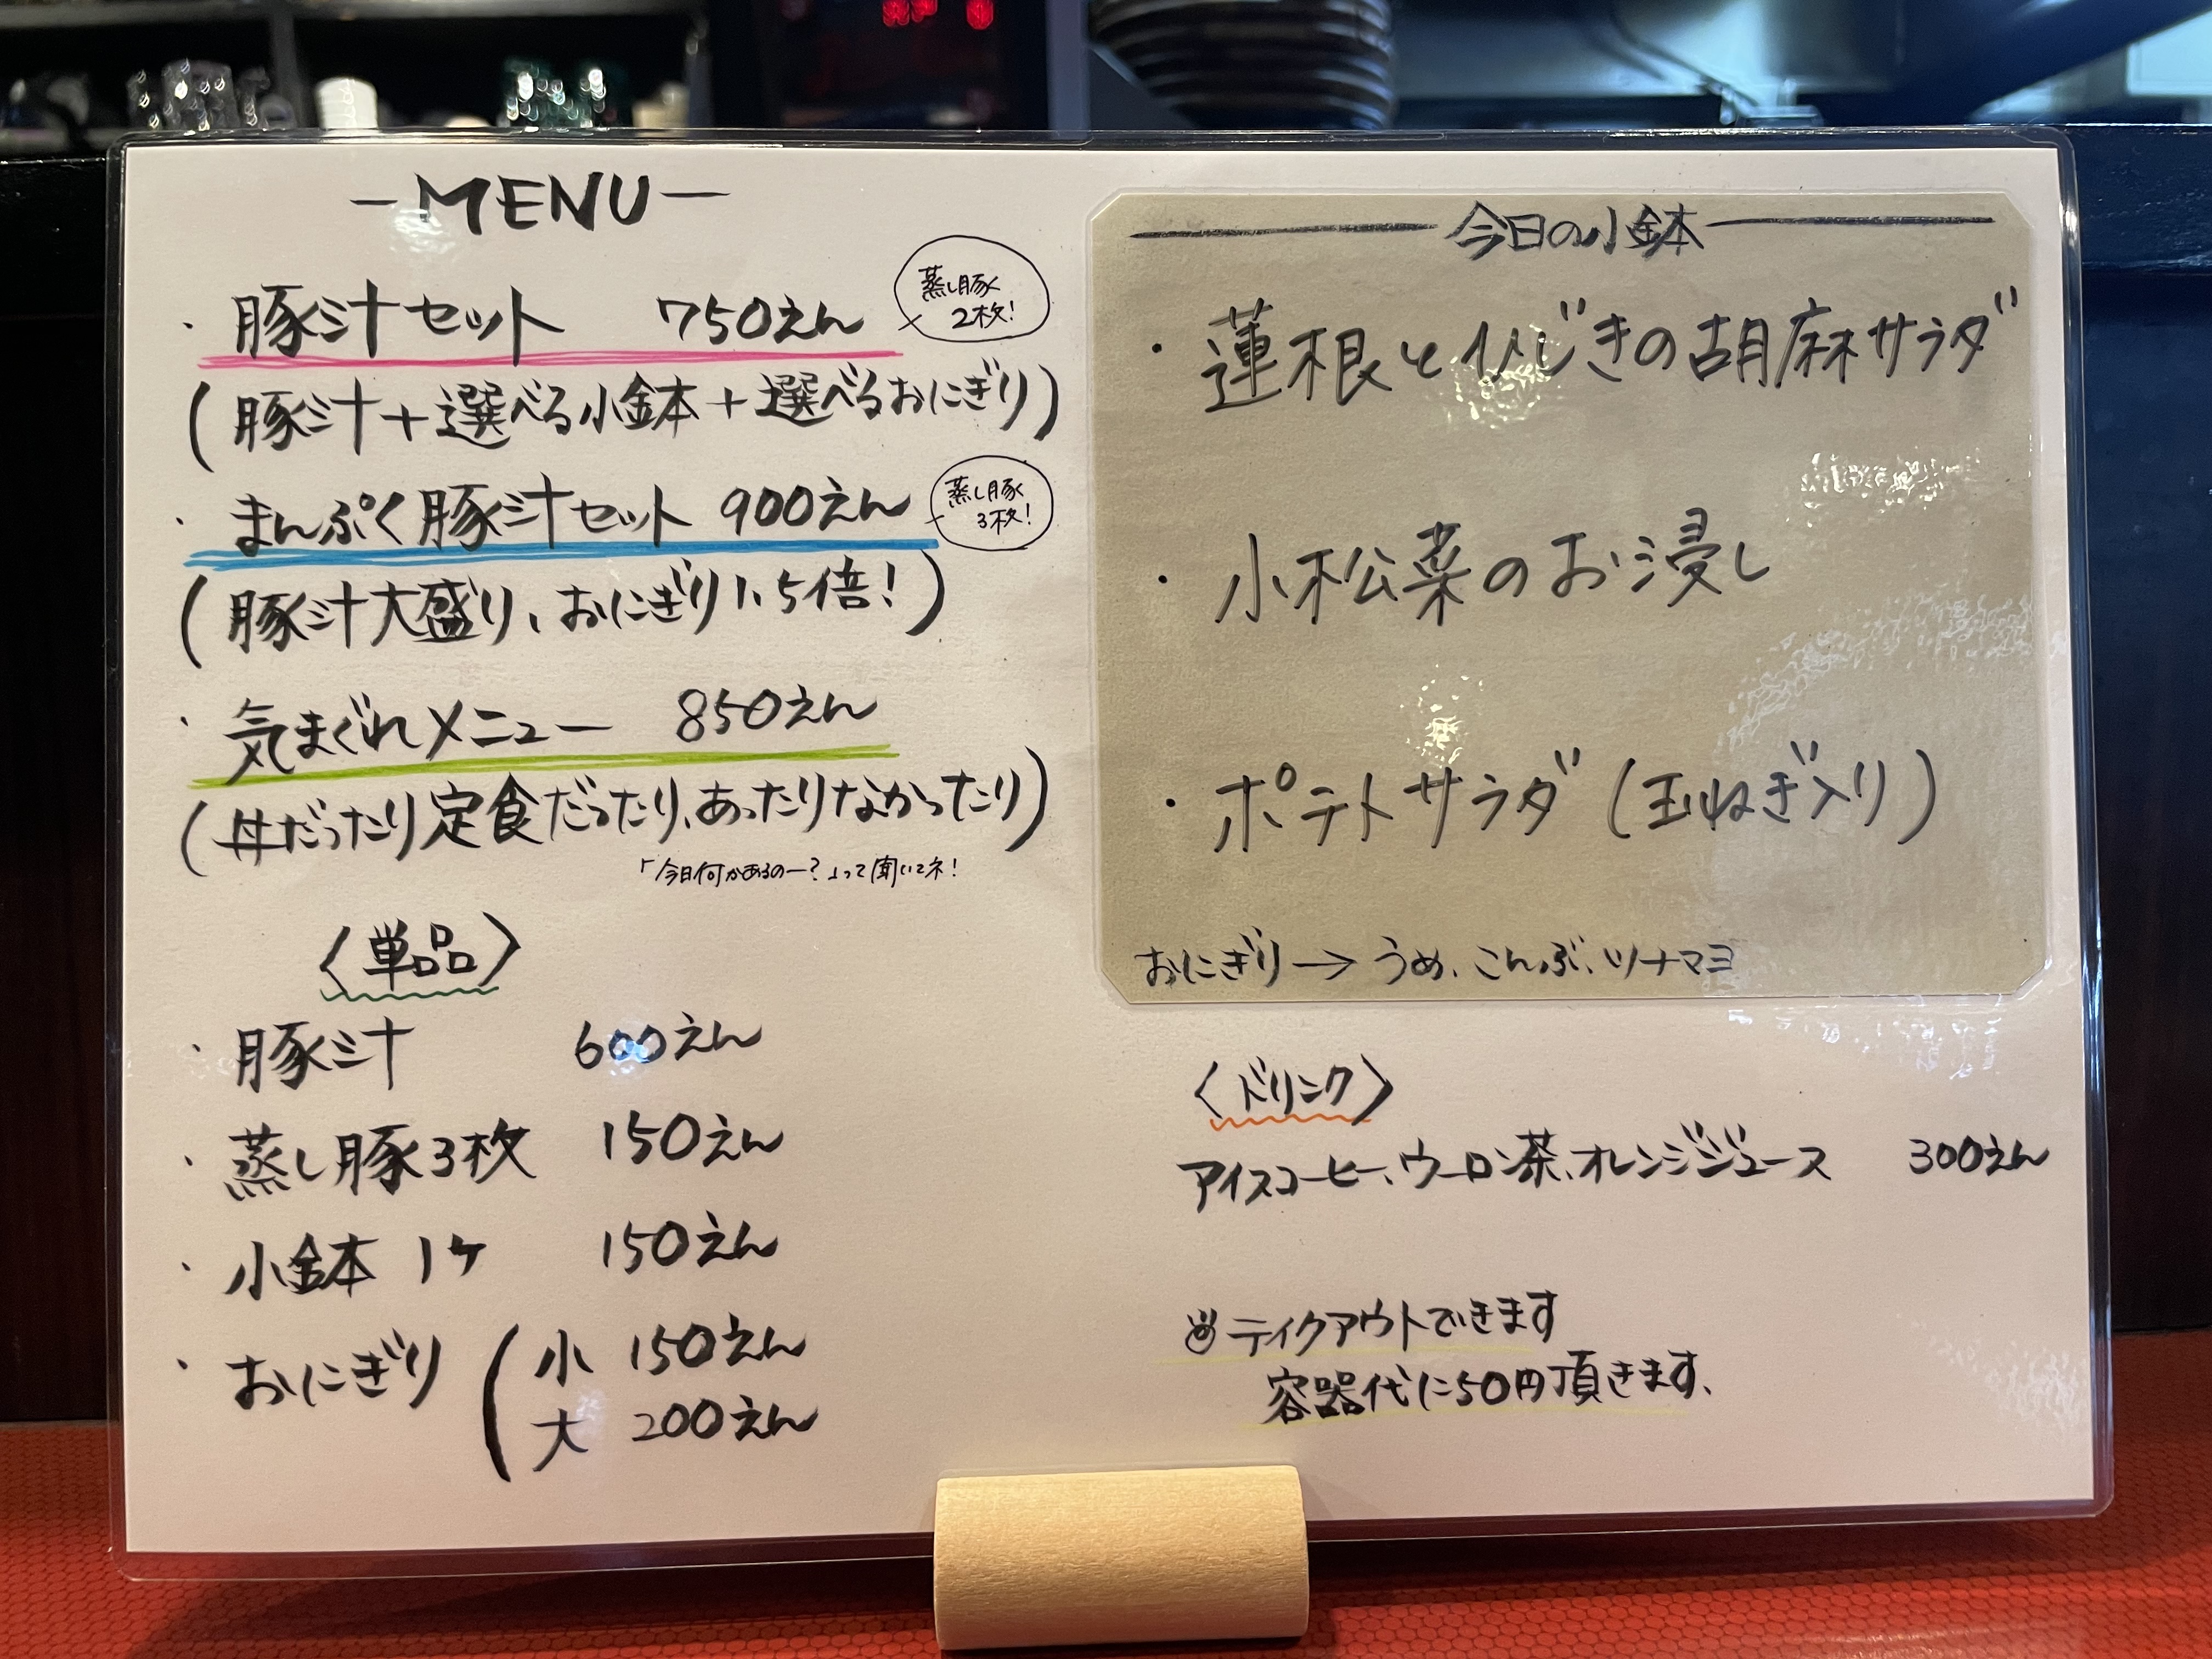 -MENU-
・豚汁セット 750えん
蒸し豚
2枚!
(豚汁+選べる小鉢+選べるおにぎり)
・まんぷく豚汁セット 900えん
蒸し豚
3枚!
(豚汁大盛り、おにぎり1.5倍!)
・気まぐれメニュー 850えん
(丼だったり定食だったり、あったりなかったり)
「今日何かあるのー?」って聞いてネ!
〈単品〉
・豚汁 600えん
・蒸し豚3枚 150えん
・小鉢 1ケ 150えん
・おにぎり(小 150えん
大 200えん
今日の小鉢
・蓮根とひじきの胡麻サラダ
・小松菜のお浸し
・ポテトサラダ(玉ねぎ入り)
おにぎり→うめ、こんぶ、ツナマヨ
〈ドリンク〉
アイスコーヒー、ウーロン茶、オレンジジュース 300えん
テイクアウトできます
容器代に50円頂きます。